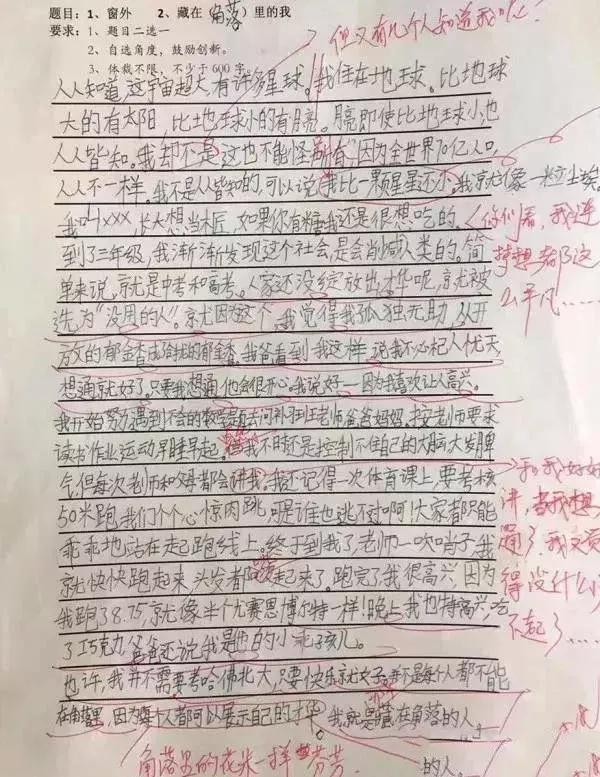 题目：1、窗外 2、藏在（角落）里的我
要求：1、题目二选一
2、自选角度，鼓励创新。
3、体裁不限，不少于600字
但又有几个人知道我呢？
人人知道，这宇宙超大有许多星球。我住在地球。比地球
大的有太阳，比地球小的有月亮。月亮即使比地球小，也
人人皆知。我却不是，这也不能怪，因为全世界70亿人口，
人人不一样。我不是人人皆知的，可以说我比一颗星星还小，我就像一粒尘埃。
我叫xxx，长大想当木匠，如果你有糖我还是很想吃的。
你们看，我连
梦想都这
么平凡……
到了三年级，我渐渐发现这个社会，是会消灭人类的。简
单来说，就是中考和高考。人家还没绽放出才华呢，就被
选为“没用的人”。就因为这个，我觉得我孤独无助，从开
放的郁金香成枯的郁金香。我爸看到我这样，说我不必杞人忧天，
想通就好了。只要我想通，他会很开心。我说好——因为我喜欢让人高兴。
我开始努力，遇到不会的数学题去问补习班老师爸爸妈妈，按老师要求
读书作业运动早睡早起。但我不时还是控制不住自己的大脑大发脾
气，但每次老师和父母都会讲我。我还记得一次体育课上，要考核
50米跑，我们个个心惊肉跳，可是谁也逃不过啊！大家都只能
乖乖地站在起跑线上。终于到我了，老师一吹哨子，我
就快快跑起来，头发都起来了。跑完了，我很高兴，因为
我跑了8.75，就像半个尤赛恩博尔特一样！晚上我也特高兴，吃
了巧克力，爸爸还说我是他的小乖孩儿。
和我好好
讲，当我想
通了，我又觉
得没什么
不起了……
也许，我并不需要考哈佛北大，只要快乐就好。并不是每个人都不能
在角落里，因为每个人都可以展示自己的才华。我就是藏在角落的人。
角落里的花朵一样芬芳
的人。